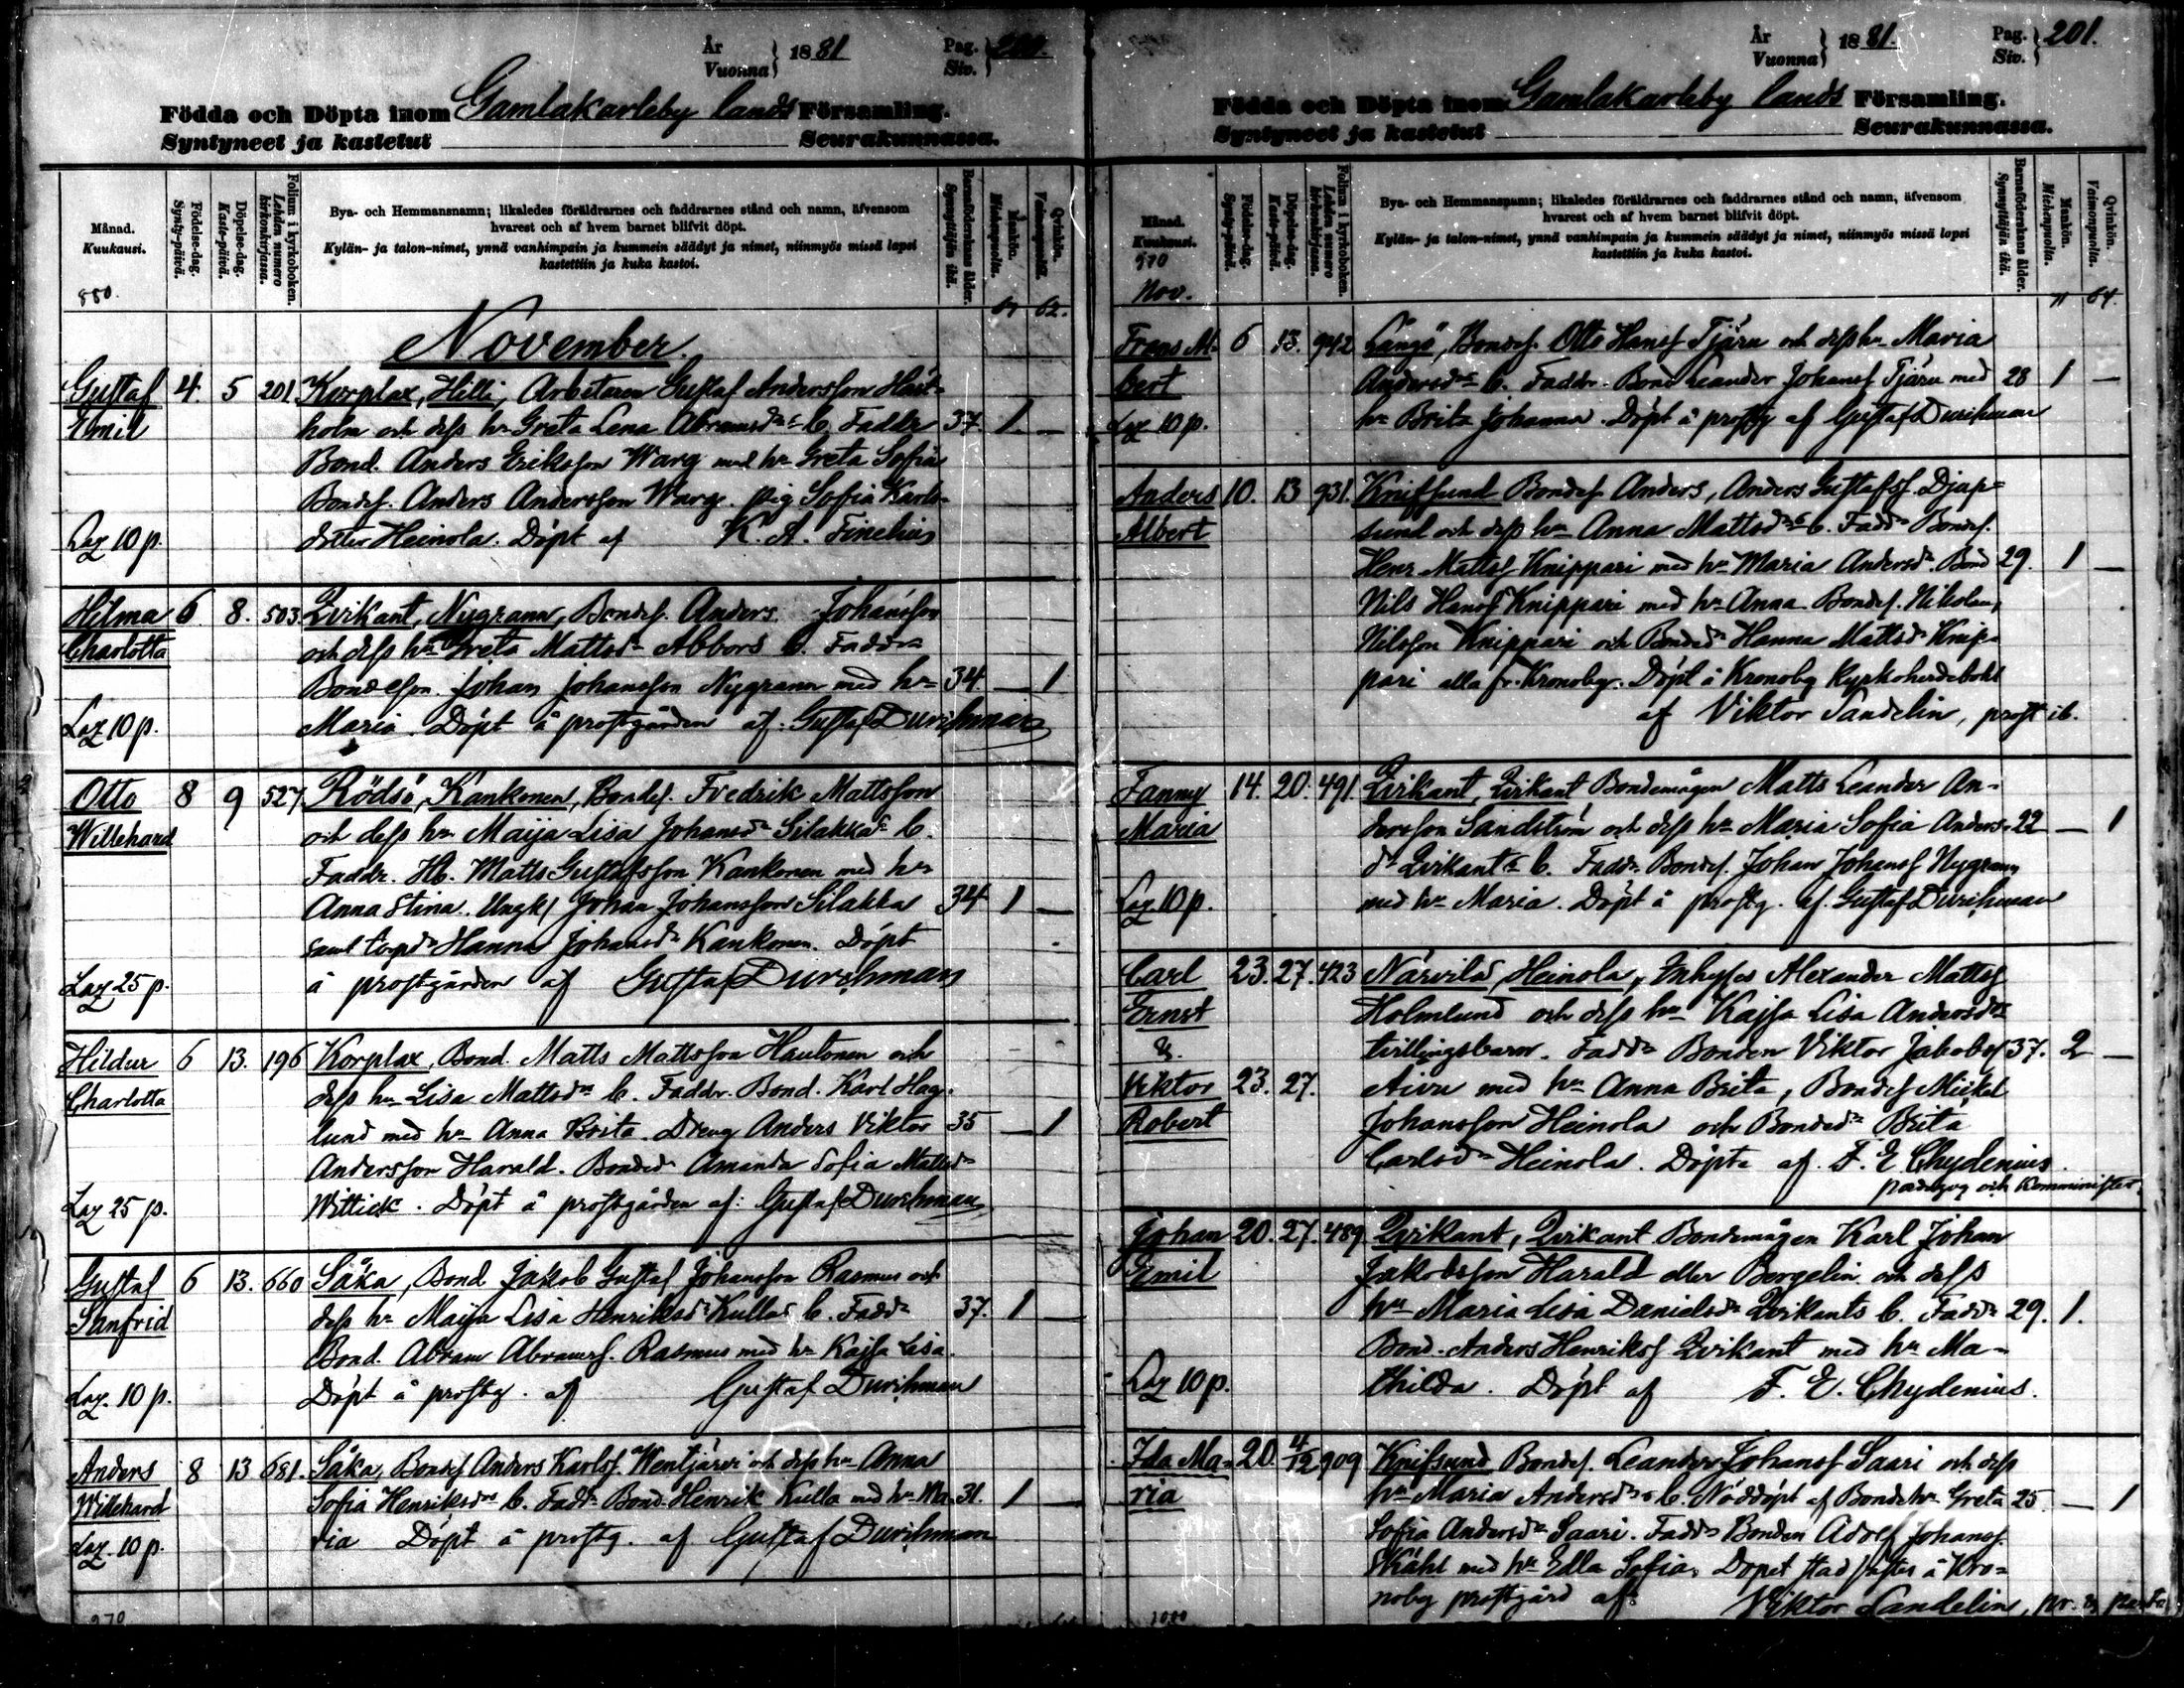 År
Vuonna } 1881 Pag.
Siv. } 200.
Födda och Döpta inom Gamlakarleby lands Församling.
Syntyneet ja kastetut Seurakunnassa.
Månad.
Kuukausi.
Födelse-dag.
Synty-päivä.
Döpelse-dag.
Kaste-päivä.
Folium i kyrkoboken.
Lehden numero
kirkonkirjassa.
Bya- och Hemmansnamn; likaledes föräldrarnes och faddrarnes stånd och namn, äfvensom
hvarest och af hvem barnet blifvit döpt.
Kylän- ja talon-nimet, ynnä vanhimpain ja kummein säädyt ja nimet, niinmyös missä lapsi
kastettiin ja kuka kastoi.
Barnaföderskans ålder.
Synnyttäjän ikä.
Mankön.
Miehenpuolia.
Qvinkön.
Vaimonpuolia.
880.
62.
November.
Gustaf 4. 5 201. Korplax, Hilli, Arbetaren Gustaf Andersson
Emil holm och dess h. Greta Lena Abramsd:r b. Faddr 37. 1 —
Bond. Anders Eriksson Warg med h. Greta Sofia
Bondes. Anders Andersson Warg. pig. Sofia Karls-
Lag 10 p. dotter Heinola. Döpt af K. A. Finelius
Hilma 6. 8. 503. Qvikant, Nygrann, Bondes. Anders Johansson
Charlotta och dess h:u Greta Mattsd:r Abbors b. Faddr
Bondeson. Johan Johansson Nygrann med h:u 34. — 1
Lag 10 p. Maria. Döpt å prostgården af. Gustaf Durchman
Otto 8 9 527 Rödsö, Kankonen, Bondes. Fredrik Mattsson
Willehard och dess h:u Maija Lisa Johansd:r Silakka b.
Faddr. Hb. Matts Gustafsson Kankonen med h:u
Anna Stina. Ungk. Johan Johansson Silakka 34 1 —
samt torpd:r Hanna Johansd:r Kankonen. Döpt
Lag 25 p. å prostgården af Gustaf Durchman
Hildur 6 13. 196 Korplax, Bond. Matts Mattsson Hautonen och
Charlotta dess h:u Lisa Mattsd:r b. Faddr. Bond. Karl Hag-
lund med h:u Anna Brita. Dreng Anders Viktor 35 — 1
Andersson Harald. Bonded:r Amanda Sofia Mattsd:r
Lag 25 p. Wittick. Döpt å prostgården af: Gustaf Durchman
Gustaf 6 13. 660 Såka, Bond. Jakob Gustaf Johansson Rasmus och
Sanfrid dess h:u Maija Lisa Henriksd:r Kulla b. Fadd:r 37. 1 —
Bond. Abram Abramss. Rasmus med h:u Kajsa Lisa.
Lag. 10 p. Döpt å prostg. af Gustaf Durchman
Anders 8 13 681. Såka, Bondes Anders Karlss. Wentjärvi och dess h:u Anna
Willehard Sofia Henriksd:r b. Fadd:r Bond. Henrik Kulla med h:u Ma- 31. 1 —
Lag. 10 p. ria Döpt å prostg. af Gustaf Durchman
970
År
Vuonna } 1881. Pag.
Siv. } 201.
Födda och Döpta inom Gamlakarleby lands Församling.
Syntyneet ja kastetut Seurakunnassa.
Månad.
Kuukausi.
Födelse-dag.
Synty-päivä.
Döpelse-dag.
Kaste-päivä.
Folium i kyrkoboken.
Lehden numero
kirkonkirjassa.
Bya- och Hemmansnamn; likaledes föräldrarnes och faddrarnes stånd och namn, äfvensom
hvarest och af hvem barnet blifvit döpt.
Kylän- ja talon-nimet, ynnä vanhimpain ja kummein säädyt ja nimet, niinmyös missä lapsi
kastettiin ja kuka kastoi.
Barnaföderskans ålder.
Synnyttäjän ikä.
Mankön.
Miehenpuolia.
Qvinkön.
Vaimonpuolia.
970
Nov.
71 64.
Frans Al- 6 13. 942 Långö, Bondes. Otto Hanss Tjäru och dess h:u Maria
bert Andersd:r b. Faddr. Bond Leander Johanss Tjäru med 28 1 —
Lag 10 p. h:u Brita Johanna. Döpt å prostg af Gustaf Durchman
Anders 10. 13 931. Knifsund Bondes Anders, Anders Gustafss. Djup-
Albert sund och dess h:u Anna Mattsd:r b. Fadd:r Bondes.
Henr. Mattss Knippari med h:u Maria Andersd:r. Bond 29. 1 —
Nils Hanss Knippari med h:u Anna. Bondes. Nikolaus
Nilsson Knippari och Bonded:r Hanna Mattsd:r Knip-
pari alla fr. Kronoby. Döpt å Kronoby Kyrkoherdebohl
af Viktor Sandelin, prost ib.
Fanny 14. 20. 491. Qvikant, Qvikant Bondemågen Matts Leander An-
Maria dersson Sandström och dess h:u Maria Sofia Anders- 22 — 1
d:r Qvikant b. Fadd:r Bondes. Johan Johanss Nygrann
Lag 10 p. med h:u Maria. Döpt å prostg. af. Gustaf Durchman
Carl 23. 27. 423 Närvilä, Heinola, Inhyses Alexander Mattss
Ernst Holmlund och dess h:u Kajsa Lisa Andersd:rs
& tvillingsbarn. Fadd:r Bonden Viktor Jakobss 37. 2 —
Viktor 23. 27. Aivu med h:u Anna Brita, Bondes Mickel
Robert Johansson Heinola och Bonded:r Brita
Carlsd:r Heinola. Döpte af. F. E Chydenius.
pædagog och Kommin
Johan 20. 27. 489 Qvikant, Qvikant Bondemågen Karl Johan
Emil Jakobsson Harald eller Bergelin och dess
h:u Maria Lisa Danielsd:r Qvikants b. Fadd:r 29. 1.
Bond. Anders Henrikss Qvikant med h:u Ma-
Lag 10 p. thilda. Döpt af F. E. Chydenius.
Ida Ma- 20. 4/12 909 Knifsund Bondes. Leander Johanss Saari och dess
ria h:u Maria Andersd:rs b. Nöddöpt af Bondeh:u Greta 25 — 1
Sofia Andersd:r Saari. Fadd:r Bonden Adolf Johanss.
Kåhl med h:u Edla Sofia. Dopet stadfästes å Kro-
noby prostgård af: Viktor Sandelin, pr.
1000